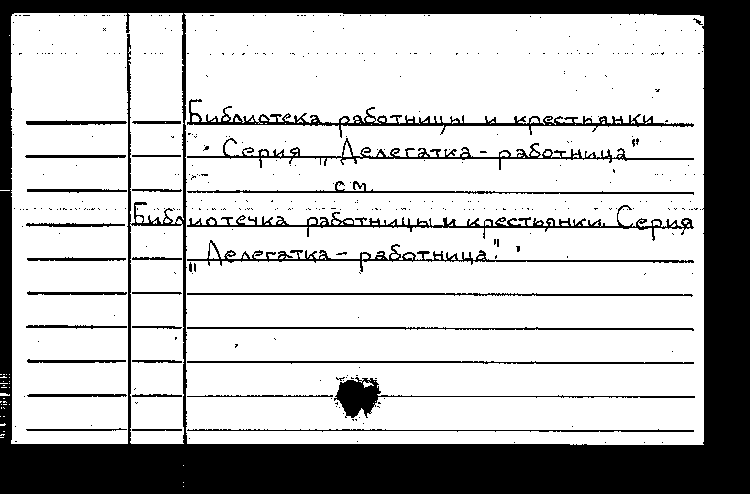 Библиотека работницы и крестьянки.
Серия „Делегатка - работница"
см.
Библиотечка работницы и крестьянки. Серия
„Делегатка - работница".